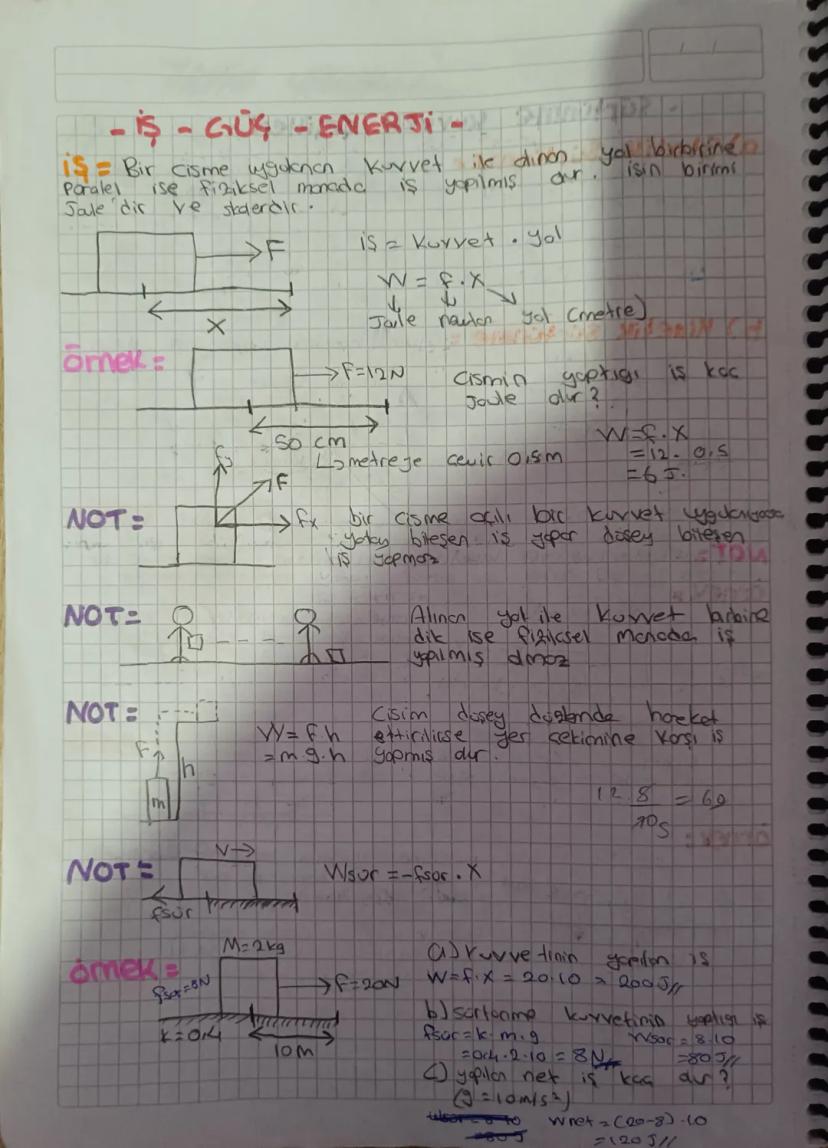 - İŞ - GÜÇ - ENERJİ -
İŞ = Bir cisme uygulanan kuvvet ile alınan yol birbirine
Paralel ise fiziksel manada iş yapılmış dır. işin birimi
Joule'dir ve skalerdir.
F
x
iş = kuvvet . yol
W = f . x
Joule newton yol (metre)
Örnek =
F=12N
50 cm
↳ metreye cevir 0,5m
Cismin yaptığı iş kaç
Joule dur?
W=f.x
=12. 0,5
=6 J.
NOT =
fy
F
fx
bir cisme açılı bir kuvvet uygulanırsa
yatay bileşen iş yapar düşey bileşen
iş yapmaz
NOT =
Alınan yol ile kuvvet birbirine
dik ise fiziksel manada iş
yapılmış olmaz
NOT =
F
h
m
W = f.h
= m.g.h
Cisim düşey doğrultuda hareket
ettirilirse yer çekimine karşı iş
yapmış dır.
NOT =
V→
fsür
Wsür = -fsür . x
Örnek =
M=2kg
fsür=8N
F=20N
k=0,4
10m
a) kuvvetinin yapılan iş
W=f.x = 20.10 = 200J//
b) sürtünme kuvvetinin yaptığı iş
fsür=k.m.g
=0,4.2.10 = 8N
Wsür = 8.10
=80J//
c) yapılan net iş kaç dır?
(g=10m/s²)
Wnet = (20-8).10
=120J//